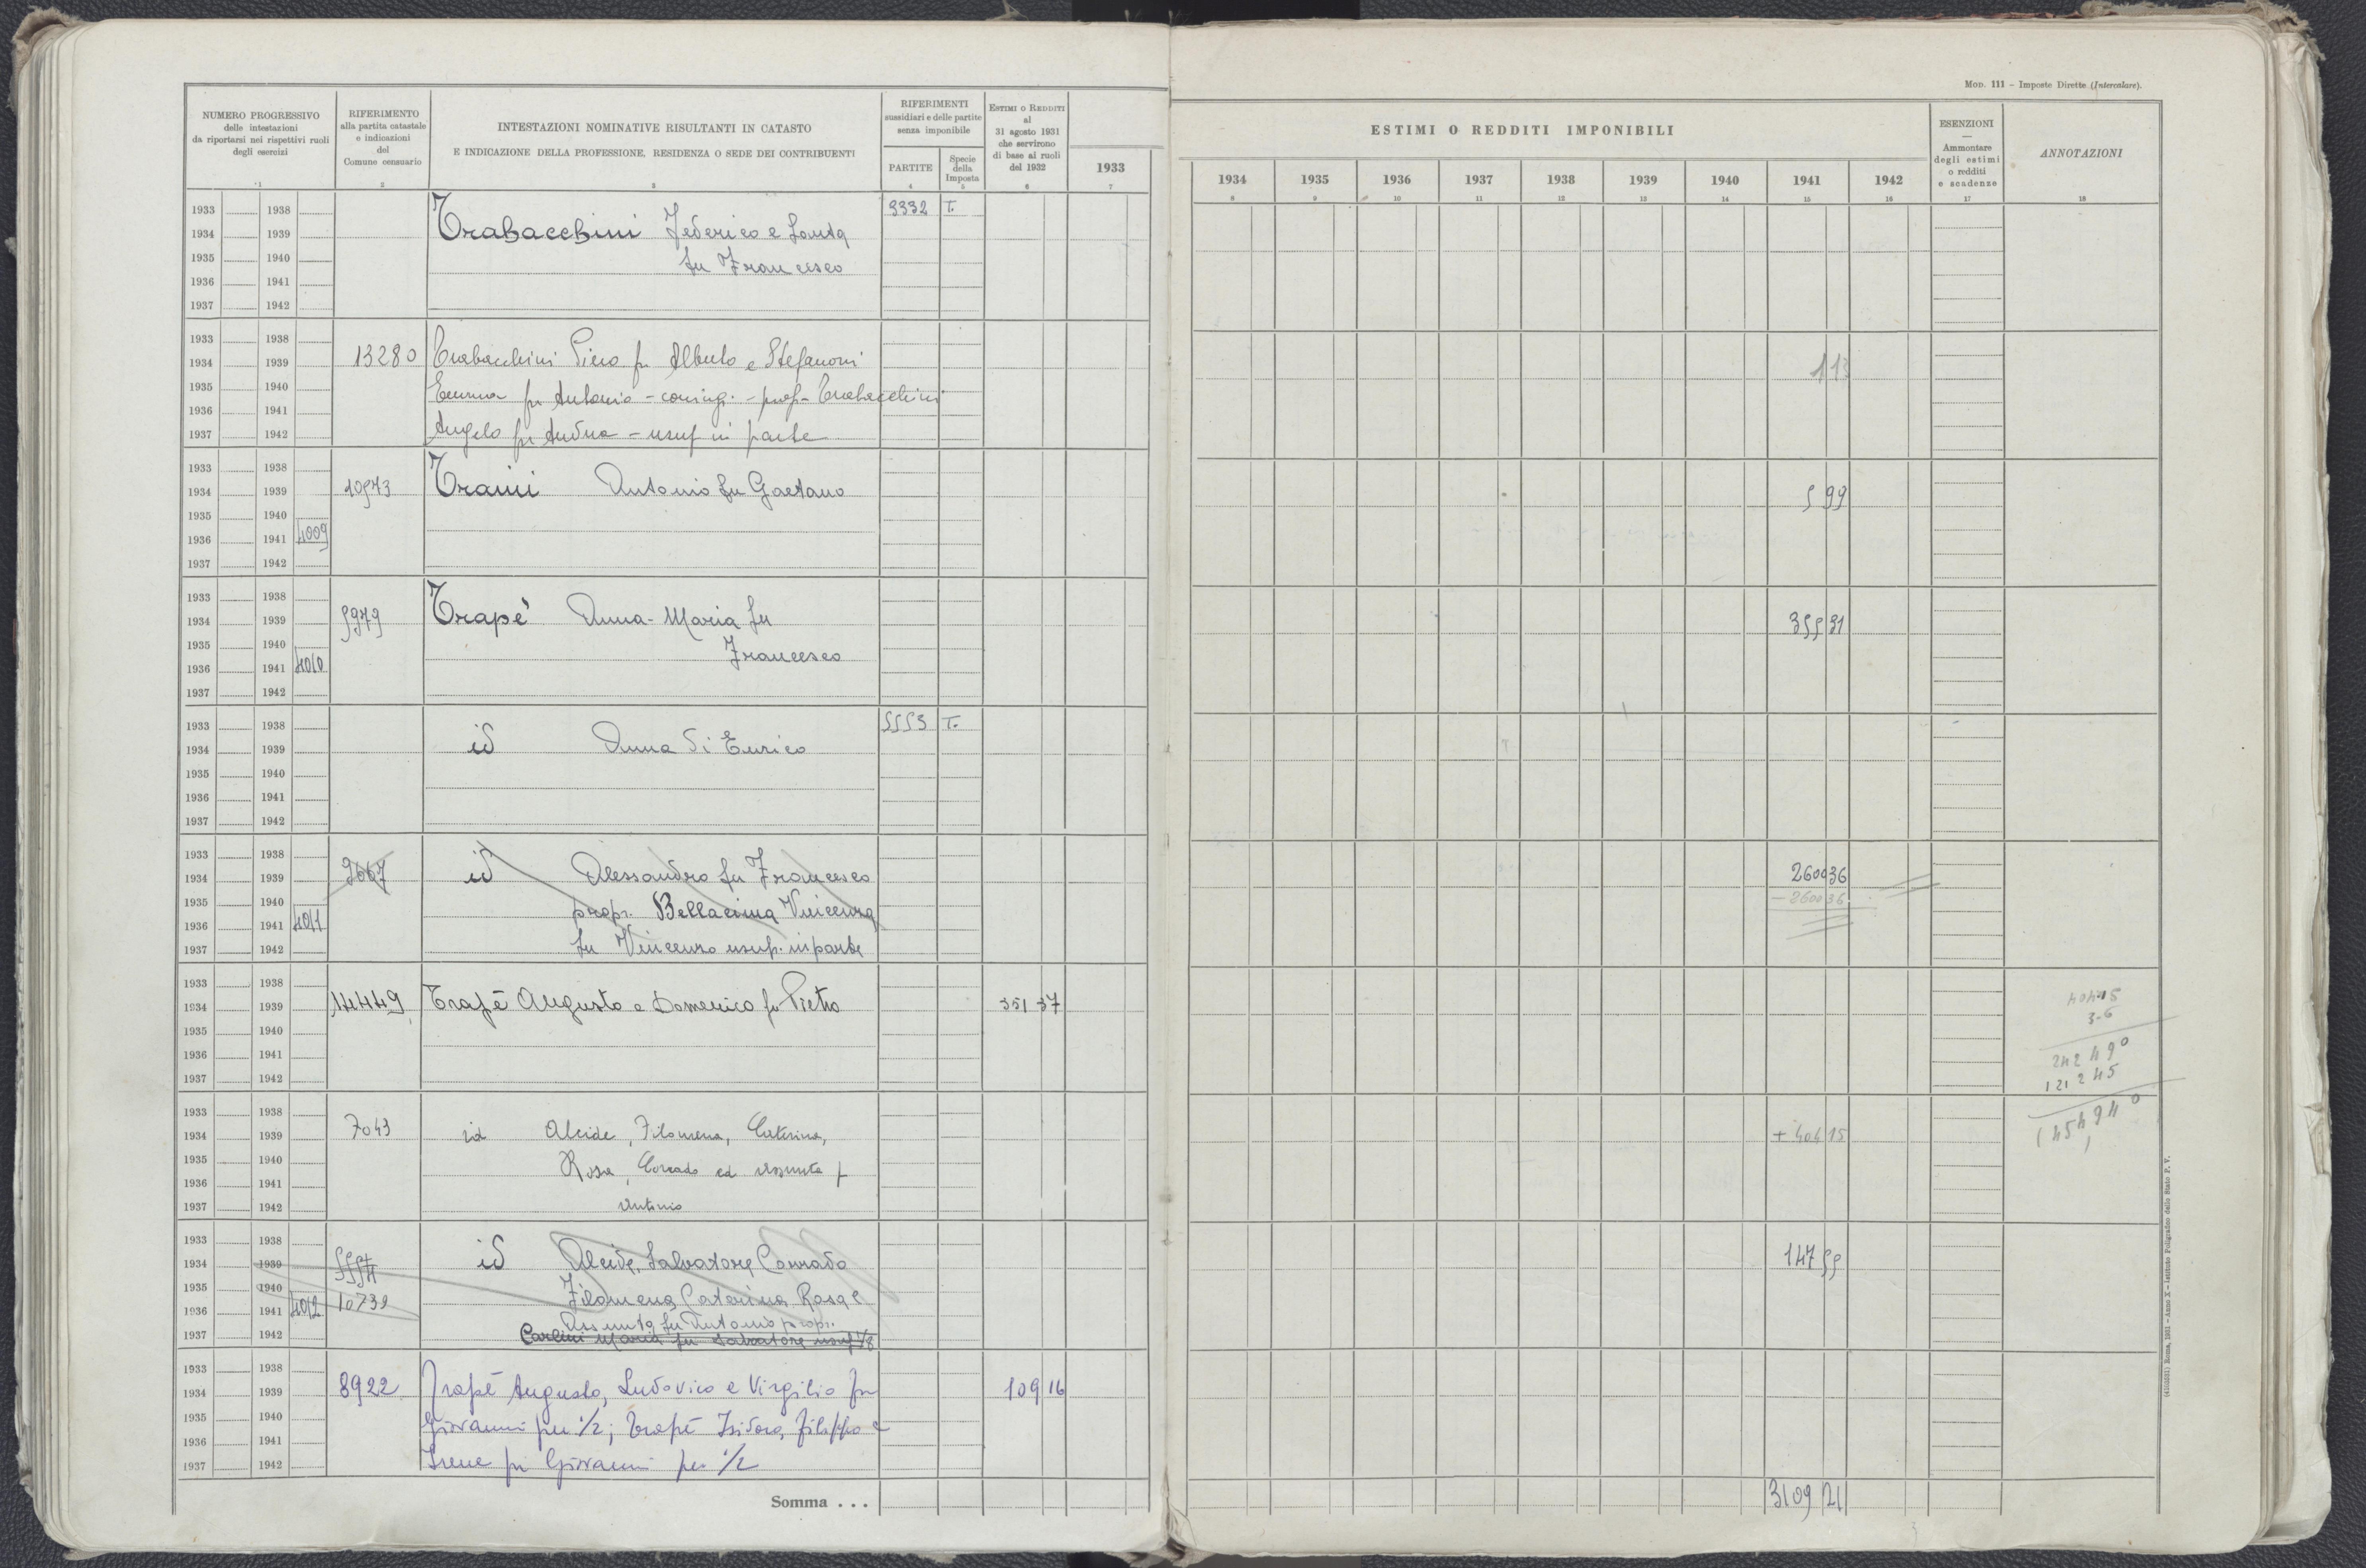 MOD. 111 – Imposte Dirette (Intercalare).
NUMERO PROGRESSIVO
delle intestazioni
da riportarsi nei rispettivi ruoli
degli esercizi
RIFERIMENTO
alla partita catastale
e indicazioni
del
Comune censuario
INTESTAZIONI NOMINATIVE RISULTANTI IN CATASTO
E INDICAZIONE DELLA PROFESSIONE, RESIDENZA O SEDE DEI CONTRIBUENTI
RIFERIMENTI
sussidiari e delle partite
senza imponibile
PARTITE
Specie
della
Imposta
ESTIMI O REDDITI
al
31 agosto 1931
che servirono
di base ai ruoli
del 1932
1933
ESTIMI O REDDITI IMPONIBILI
1934 1935 1936 1937 1938 1939 1940 1941 1942
ESENZIONI
—
Ammontare
degli estimi
o redditi
e scadenze
ANNOTAZIONI
1 2 3 4 5 6 7 8 9 10 11 12 13 14 15 16 17 18
1933 1938 3332 T.
1934 1939 Trabacchini Federico e Santa
1935 1940 fu Francesco
1936 1941
1937 1942
1933 1938
1934 1939 13280 Trabacchini Piero fu Alberto e Stefanoni 113
1935 1940 Emma fu Antonio - coniugi - prop - Trabacchini
1936 1941
1937 1942 Angelo fu Andrea - usuf in parte
1933 1938
1934 1939 10573 Traini Antonio fu Gaetano 5 99
1935 1940
1936 1941 4009
1937 1942
1933 1938
1934 1939 5979 Trapè Anna-Maria fu 355 31
1935 1940 Francesco
1936 1941 4010
1937 1942
1933 1938 5553 T.
1934 1939 id Anna di Enrico
1935 1940
1936 1941
1937 1942
1933 1938
1934 1939 9667 id Alessandro fu Francesco 2600 36
1935 1940 propr. Bellacima Vincenza - 2600 36
1936 1941 4011
1937 1942 fu Vincenzo usuf. in parte
1933 1938
1934 1939 14449 Trapè Augusto e Domenico fu Pietro 351 37 404 15
1935 1940 3-6
1936 1941 242 490
1937 1942 121 245
1933 1938
1934 1939 7043 id Alcide, Filomena, Caterina, + 404 15
1935 1940 Rosa, Corrado ed Assunta f
1936 1941
1937 1942 Antonio
1933 1938
1934 1939 5554 id Alcide, Salvatore, Corrado 147 55
1935 1940 Filomena, Caterina, Rosa e
1936 1941 4012 10739 Assunta fu Antonio propr.
1937 1942 Carlini Maria fu Salvatore usuf 1/8
1933 1938
1934 1939 8922 Trapè Augusto, Ludovico e Virgilio fu 109 16
1935 1940 Giovanni per 1/2; Trapè Isidoro, Filippo e
1936 1941
1937 1942 Irene fu Giovanni per 1/2
Somma . . . 3109 21